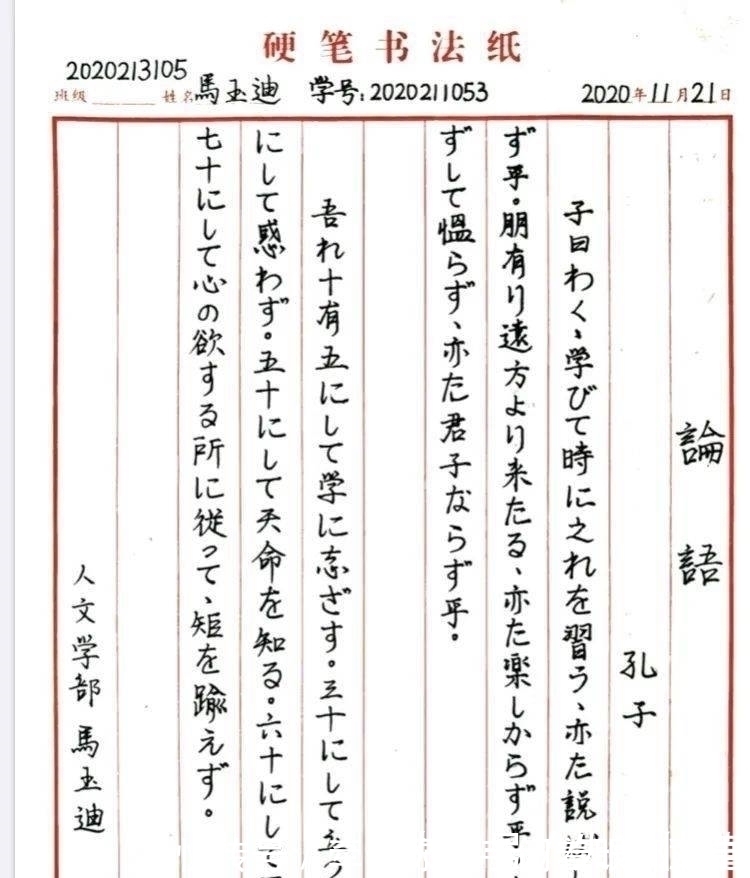 硬笔书法纸
2020213105
班级 姓名 馬玉迪 学号:2020211053 2020年11月21日
論語
孔子
子曰わく、学びて時に之れを習う、亦た説
ず乎。朋有り遠方より来たる、亦た楽しからず乎
ずして慍らず、亦た君子ならず乎。
吾れ十有五にして学に志ざす。三十にして立つ
にして惑わず。五十にして天命を知る。六十にして
七十にして心の欲する所に従って、矩を踰えず。
人文学部 馬玉迪